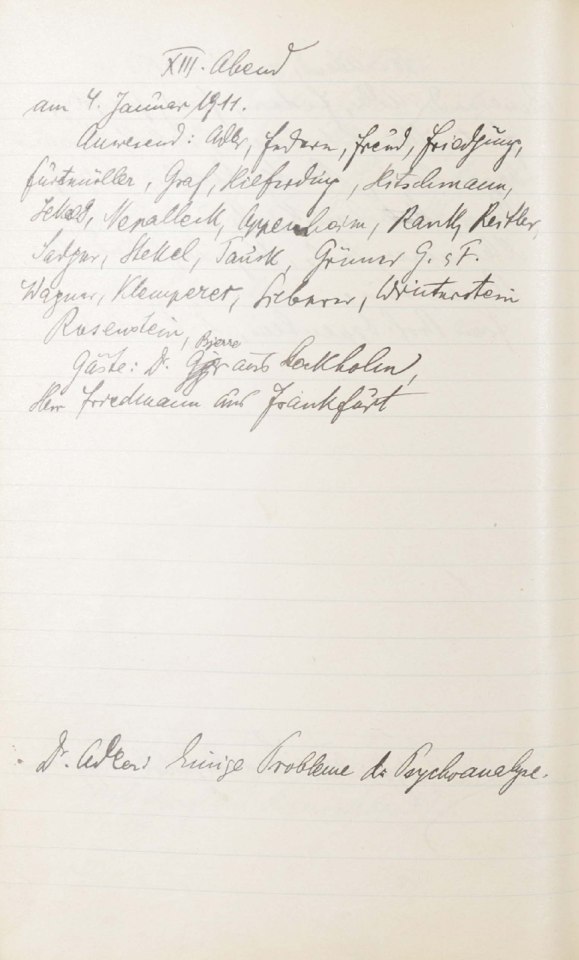 XIII. Abend
am 4. Januar 1911.
Anwesend: Adler, Federn, Freud, Friedjung,
Furtmüller, Graf, Hilferding, Hitschmann,
Jekels, Nepalleck, Oppenheim, Rank, Reitler,
Sadger, Stekel, Tausk, Grüner G. u F.
Wagner, Klemperer, Silberer, Winterstein
Rosenstein, Bjerre
Gäste: Dr. aus Stockholm,
Herr Friedmann aus Frankfurt
Dr. Adler: Einige Probleme der Psychoanalyse.